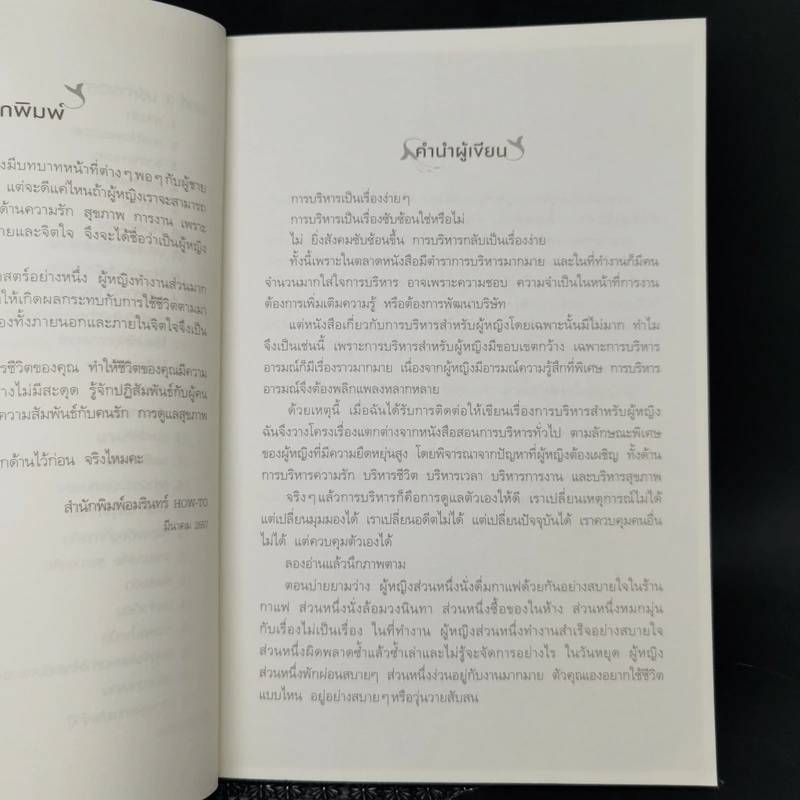 กพิมพ์
งมีบทบาทหน้าที่ต่างๆ พอๆ กับผู้ชาย
แต่จะดีแค่ไหนถ้าผู้หญิงเราจะสามารถ
ด้านความรัก สุขภาพ การงาน เพราะ
ายและจิตใจ จึงจะได้ชื่อว่าเป็นผู้หญิง
สตร์อย่างหนึ่ง ผู้หญิงทำงานส่วนมาก
ให้เกิดผลกระทบกับการใช้ชีวิตตามมา
องทั้งภายนอกและภายในจิตใจจึงเป็น
รชีวิตของคุณ ทำให้ชีวิตของคุณมีความ
างไม่มีสะดุด รู้จักปฏิสัมพันธ์กับผู้คน
ความสัมพันธ์กับคนรัก การดูแลสุขภาพ
กด้านไว้ก่อน จริงไหมคะ
สำนักพิมพ์อมรินทร์ HOW-TO
มีนาคม 2557
คำนำผู้เขียน
การบริหารเป็นเรื่องง่ายๆ
การบริหารเป็นเรื่องซับซ้อนใช่หรือไม่
ไม่ ยิ่งสังคมซับซ้อนขึ้น การบริหารกลับเป็นเรื่องง่าย
ทั้งนี้เพราะในตลาดหนังสือมีตำราการบริหารมากมาย และในที่ทำงานก็มีคน
จำนวนมากใส่ใจการบริหาร อาจเพราะความชอบ ความจำเป็นในหน้าที่การงาน
ต้องการเพิ่มเติมความรู้ หรือต้องการพัฒนาบริษัท
แต่หนังสือเกี่ยวกับการบริหารสำหรับผู้หญิงโดยเฉพาะนั้นมีไม่มาก ทำไม
จึงเป็นเช่นนี้ เพราะการบริหารสำหรับผู้หญิงมีขอบเขตกว้าง เฉพาะการบริหาร
อารมณ์ก็มีเรื่องราวมากมาย เนื่องจากผู้หญิงมีอารมณ์ความรู้สึกที่พิเศษ การบริหาร
อารมณ์จึงต้องพลิกแพลงหลากหลาย
ด้วยเหตุนี้ เมื่อฉันได้รับการติดต่อให้เขียนเรื่องการบริหารสำหรับผู้หญิง
ฉันจึงวางโครงเรื่องแตกต่างจากหนังสือสอนการบริหารทั่วไป ตามลักษณะพิเศษ
ของผู้หญิงที่มีความยืดหยุ่นสูง โดยพิจารณาจากปัญหาที่ผู้หญิงต้องเผชิญ ทั้งด้าน
การบริหารความรัก บริหารชีวิต บริหารเวลา บริหารการงาน และบริหารสุขภาพ
จริงๆ แล้วการบริหารก็คือการดูแลตัวเองให้ดี เราเปลี่ยนเหตุการณ์ไม่ได้
แต่เปลี่ยนมุมมองได้ เราเปลี่ยนอดีตไม่ได้ แต่เปลี่ยนปัจจุบันได้ เราควบคุมคนอื่น
ไม่ได้ แต่ควบคุมตัวเองได้
ลองอ่านแล้วนึกภาพตาม
ตอนบ่ายยามว่าง ผู้หญิงส่วนหนึ่งนั่งดื่มกาแฟด้วยกันอย่างสบายใจในร้าน
กาแฟ ส่วนหนึ่งนั่งล้อมวงนินทา ส่วนหนึ่งซื้อของในห้าง ส่วนหนึ่งหมกมุ่น
กับเรื่องไม่เป็นเรื่อง ในที่ทำงาน ผู้หญิงส่วนหนึ่งทำงานสำเร็จอย่างสบายใจ
ส่วนหนึ่งผิดพลาดซ้ำแล้วซ้ำเล่าและไม่รู้จะจัดการอย่างไร ในวันหยุด ผู้หญิง
ส่วนหนึ่งพักผ่อนสบายๆ ส่วนหนึ่งง่วนอยู่กับงานมากมาย ตัวคุณเองอยากใช้ชีวิต
แบบไหน อยู่อย่างสบายๆ หรือวุ่นวายสับสน